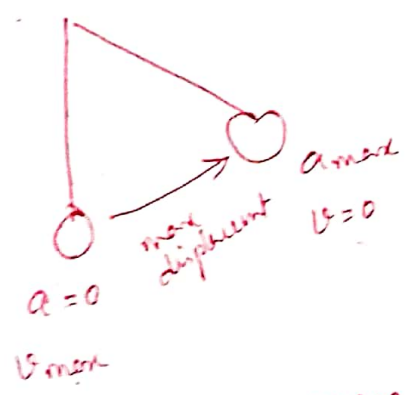 a max
v = 0
max
displacement
a = 0
v max